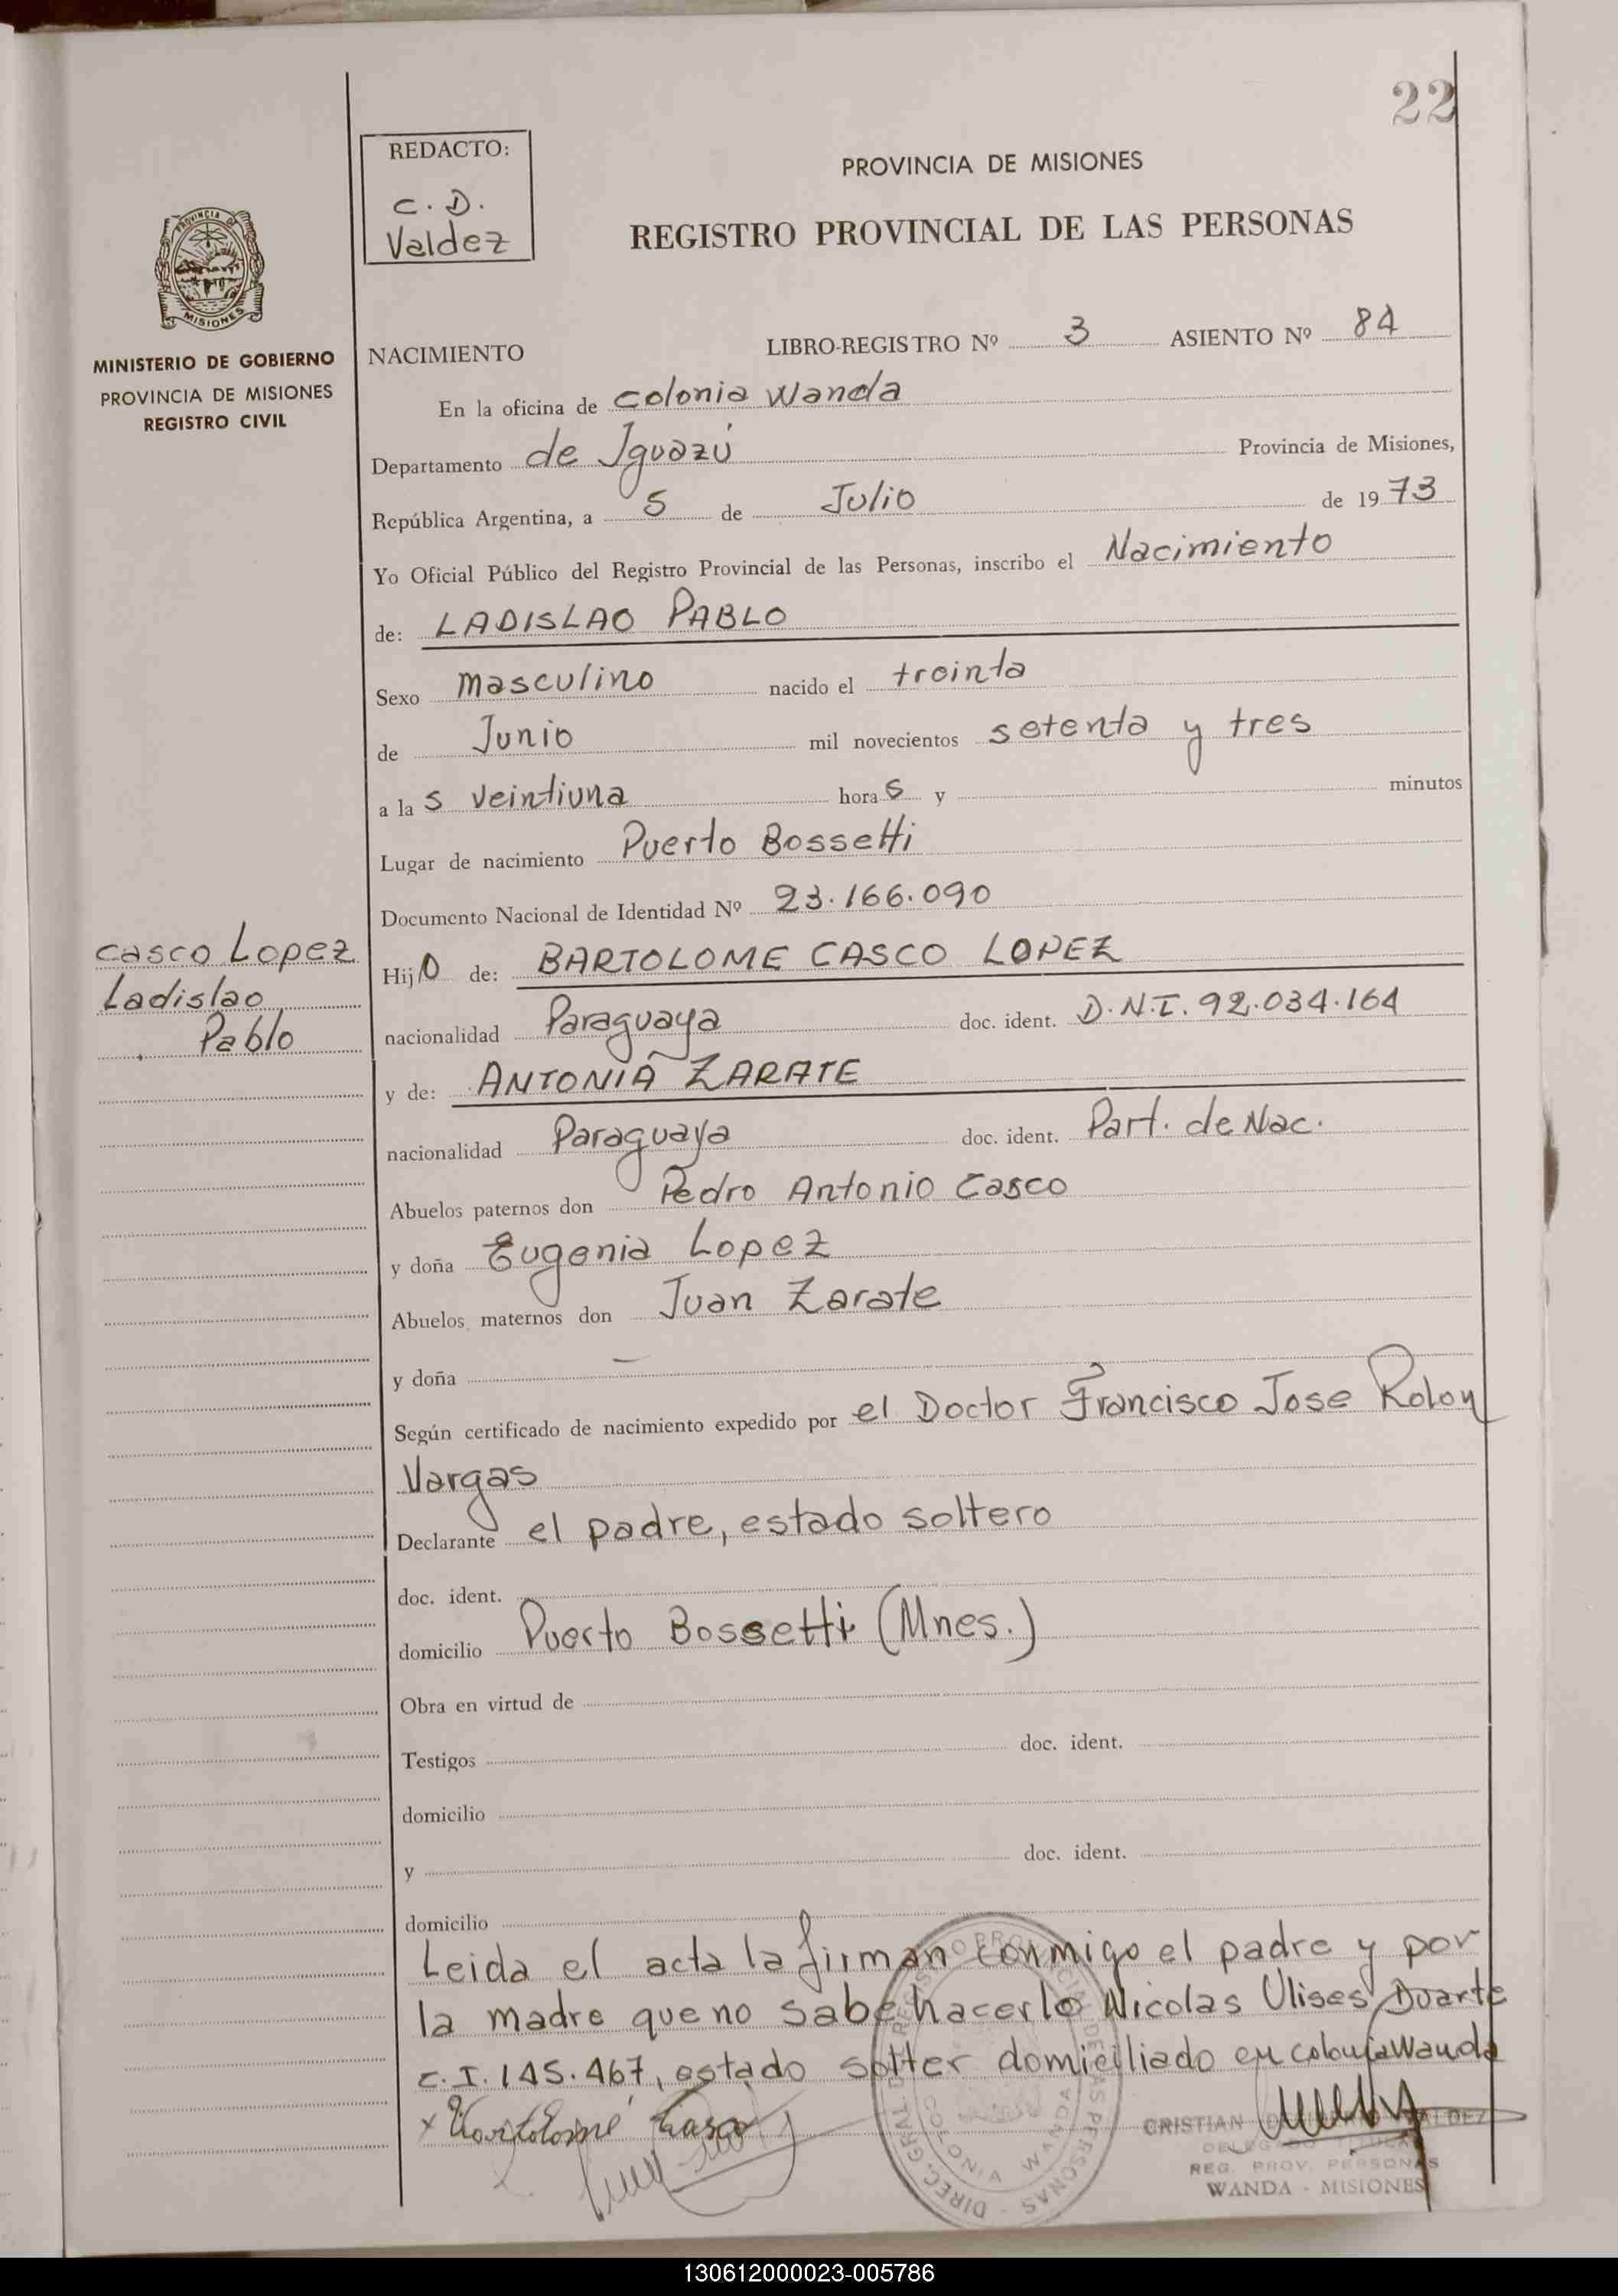 22
REDACTO:
C. D.
Valdez
PROVINCIA DE MISIONES
REGISTRO PROVINCIAL DE LAS PERSONAS
PROVINCIA DE
MISIONES
MINISTERIO DE GOBIERNO
PROVINCIA DE MISIONES
REGISTRO CIVIL
NACIMIENTO LIBRO-REGISTRO Nº 3 ASIENTO Nº 84
En la oficina de Colonia Wanda
Departamento de Iguazú Provincia de Misiones,
República Argentina, a 5 de Julio de 1973
Yo Oficial Público del Registro Provincial de las Personas, inscribo el Nacimiento
de: LADISLAO PABLO
Sexo masculino nacido el treinta
de Junio mil novecientos setenta y tres
a la s veintiuna hora s y minutos
Lugar de nacimiento Puerto Bossetti
Documento Nacional de Identidad Nº 23.166.090
Casco Lopez
Ladislao
Pablo
Hijo de: BARTOLOME CASCO LOPEZ
nacionalidad Paraguaya doc. ident. D.N.I. 92.034.164
y de: ANTONIA ZARATE
nacionalidad Paraguaya doc. ident. Part. de Nac.
Abuelos paternos don Pedro Antonio Casco
y doña Eugenia Lopez
Abuelos maternos don Juan Zarate
y doña —
Según certificado de nacimiento expedido por el Doctor Francisco Jose Rolon
Vargas
Declarante el padre, estado soltero
doc. ident.
domicilio Puerto Bossetti (Mnes.)
Obra en virtud de
Testigos doc. ident.
domicilio
y doc. ident.
domicilio
Leida el acta la firman conmigo el padre y por
la madre que no sabe hacerlo Nicolas Ulises Duarte
C.I. 145.467, estado solter domiciliado en colonia Wanda
x Bartolomé Casco
DIREC. GRAL. DE REGISTRO PROVINCIAL DE LAS PERSONAS
COLONIA WANDA
CRISTIAN VALDEZ
DELEGADO TITULAR
REG. PROV. PERSONAS
WANDA - MISIONES
130612000023-005786